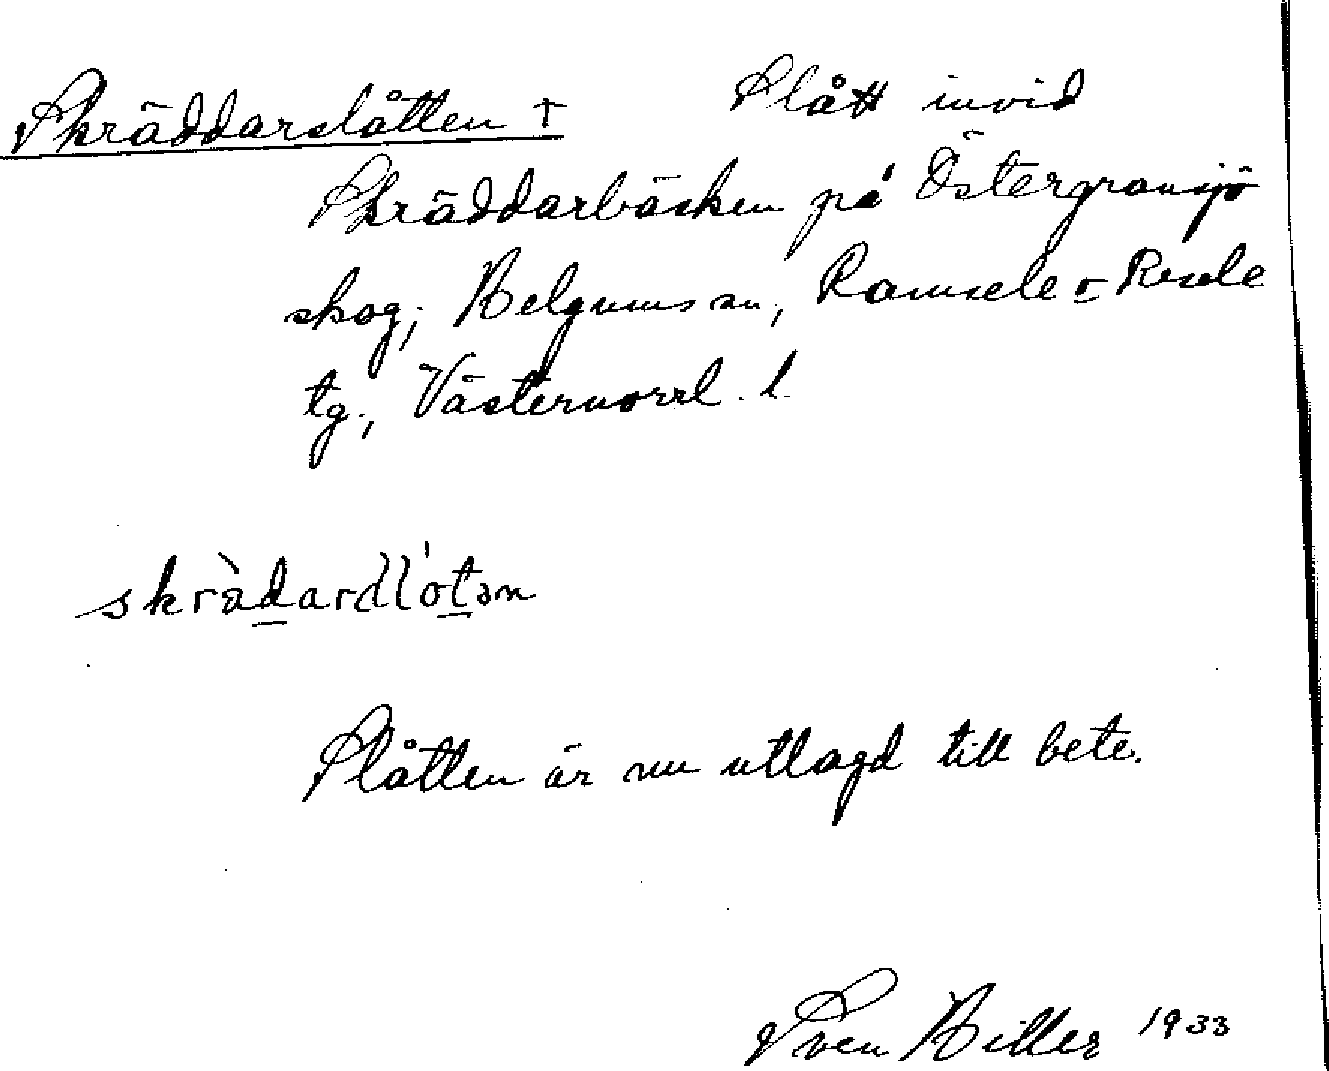 Skräddarslåtten † Slått invid
Skräddarbäcken på Östergransjö
skog, Helgums sn, Ramsele o Resele
tg., Västernorrl. l.
skràdardlótən
Slåtten är nu utlagd till bete.
Sven Hiller 1933